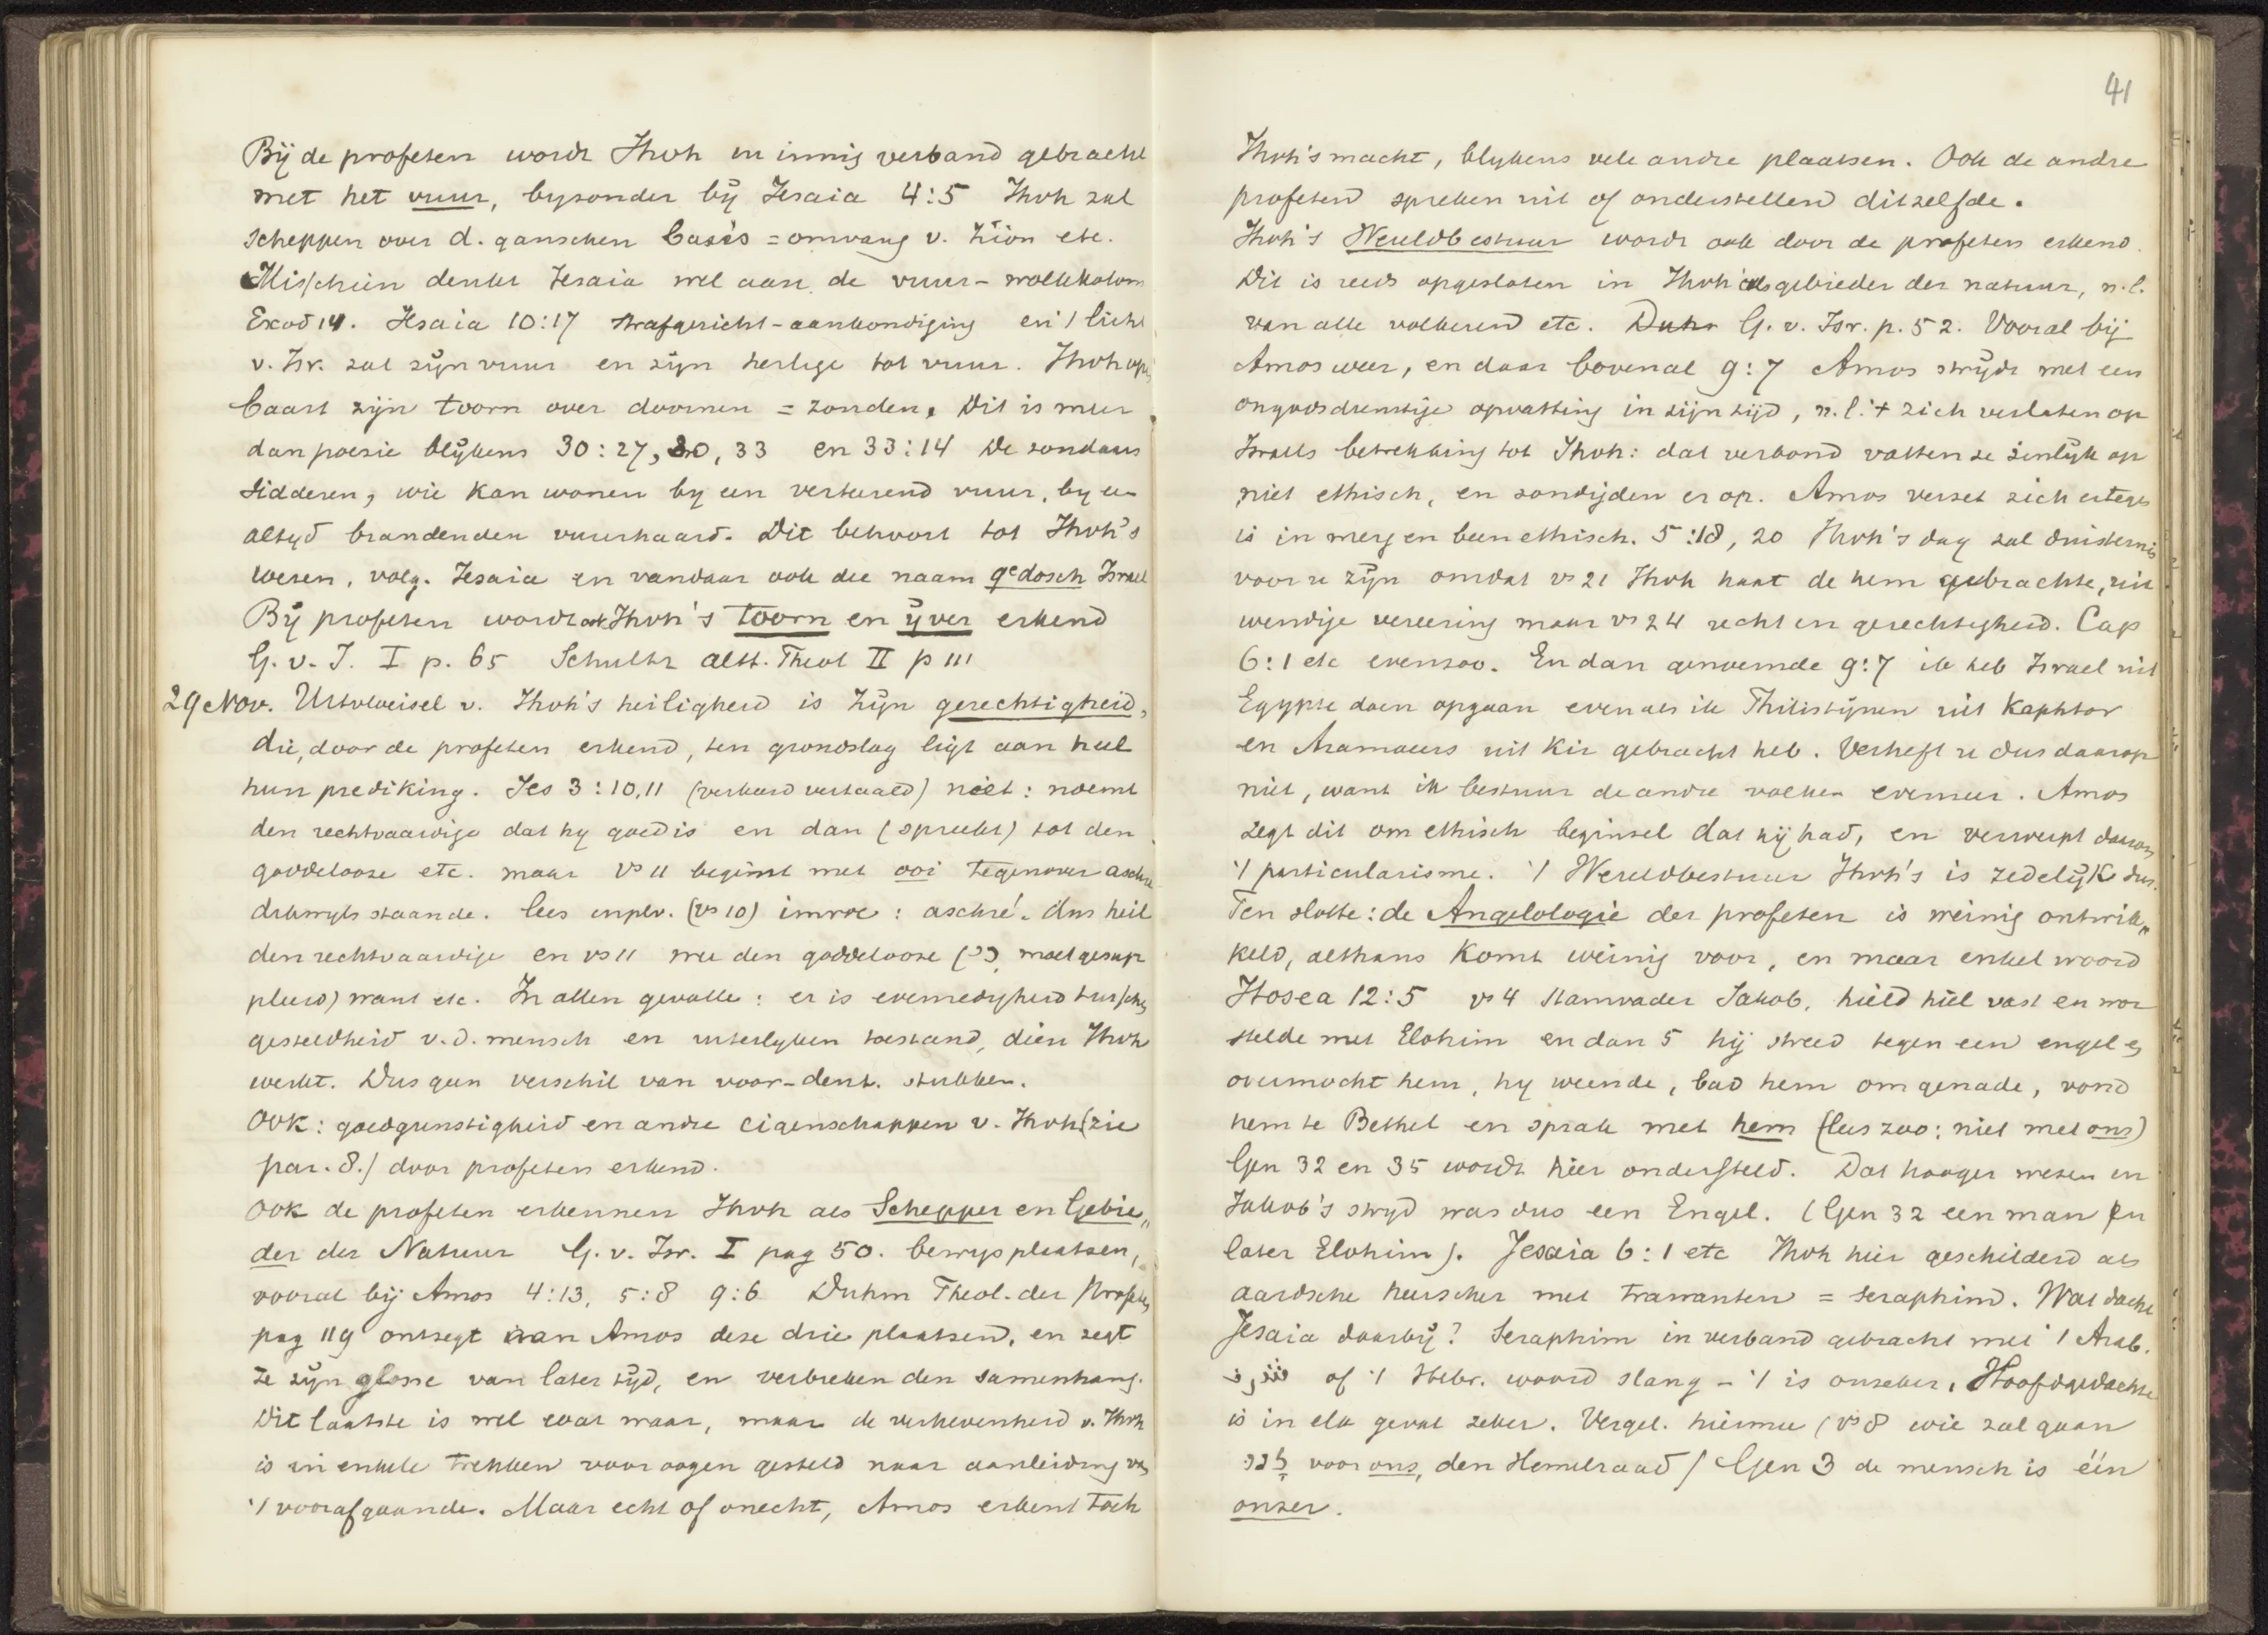 Bij de profeten wordt Jhvh in innig verband gebracht
met het vuur, byzonder bij Jesaia 4:5 Jhvh zal
scheppen over d. ganschen basis = omvang v. Zion etc.
Misschien denkt Jesaia wel aan de vuur- wolkkolom
Exod 14. Jesaia 10:17 strafgericht-aankondiging en 't licht
v. Isr. zal zijn vuur en zijn heilige tot vuur. Jhvh op
baart zijn toorn over doornen = zonden. Dit is meer
dan poezie blijkens 30:27, 30, 33 en 33:14 De zondaars
sidderen, wie kan wonen by een verterend vuur, by een
altyd brandenden vuurhaard. Dit behoort tot Jhvh's
wezen, volg. Jesaia en vandaar ook die naam qedosch Israel
Bij profeten wordt ook Jhvh's toorn en ijver erkend
G. v. I. I p. 65 Schultz altt. Theol II p 111
29 Nov. Uitvloeisel v. Jhvh's heiligheid is zijn gerechtigheid,
die, door de profeten erkend, ten grondslag ligt aan heel
hun prediking. Jes 3:10,11 (verkeerd vertaald) niet: noemt
den rechtvaardige dat hy goed is en dan (spreekt) tot den
goddelooze etc. maar vs 11 begint met ooi tegenover aschre
dikwyls staande. lees inplv. (vs 10) imroe: aschré. dus heil
den rechtvaardige en vs 11 wee den goddelooze (כי moet gesup
pleerd) want etc. In allen gevalle: er is evenredigheid tusschen
gesteldheid v. d. mensch en uiterlyken toestand, dien Jhvh
werkt. Dus geen verschil van voor-deut. stukken.
Ook: goedgunstigheid en andre eigenschappen v. Jhvh (zie
par. 8.) door profeten erkend.
Ook de profeten erkennen Jhvh als Schepper en Gebie„
der der Natuur G. v. Isr. I pag 50. bewysplaatsen,
vooral bij Amos 4:13, 5:8 9:6 Duhm Theol. der Profeten
pag 119 ontzegt aan Amos deze drie plaatsen, en zegt
ze zijn glosse van later tijd, en verbreken den samenhang.
Dit laatste is wel wat waar, maar de verhevenheid v. Jhvh
is in enkele trekken voor oogen gesteld naar aanleiding van
't voorafgaande. Maar echt of onecht, Amos erkent toch
41
Jhvh's macht, blykens vele andre plaatsen. Ook de andre
profeten spreken uit of onderstellen ditzelfde.
Jhvh's Wereldbestuur wordt ook door de profeten erkend.
Dit is reeds opgesloten in Jhvh als gebieder der natuur, n.l.
van alle volkeren etc. Duhm G. v. Isr. p. 52. Vooral bij
Amos weer, en daar bovenal 9:7 Amos strijdt met een
ongodsdienstige opvatting in zijn tijd, n.l. 't zich verlaten op
Israels betrekking tot Jhvh: dat verbond vatten ze zinlijk op
niet ethisch, en zondijden er op. Amos verzet zich ertegen
is in merg en been ethisch. 5:18, 20 Jhvh's dag zal duisternis
voor u zijn omdat vs 21 Jhvh haat de hem gebrachte, uit
wendige vereering maar vs 24 recht en gerechtigheid. Cap
6:1 etc evenzoo. En dan genoemde 9:7 ik heb Israel uit
Egypte doen opgaan evenals ik Philistijnen uit Kaphtor
en Aramaeers uit Kir gebracht heb. Verheft u dus daarop
niet, want ik bestuur de andre volken evenzeer. Amos
zegt dit om ethisch beginsel dat hij had, en verwerpt daarom
't particularisme. 't Wereldbestuur Jhvh's is zedelijk dus.
Ten slotte: de Angelologie der profeten is weinig ontwik„
keld, althans komt weinig voor, en maar enkel woord
Hosea 12:5 vs 4 stamvader Jakob, hield hiel vast en wor
stelde met Elohim en dan 5 hij streed tegen een engel en
overmocht hem, hy weende, bad hem om genade, vond
hem te Bethel en sprak met hem (lees zoo: niet met ons)
Gen 32 en 35 wordt hier ondersteld. Dat hooger wezen in
Jakob's stryd was dus een Engel. (Gen 32 een man en
later Elohim). Jesaia 6:1 etc Jhvh hier geschilderd als
aardsche heerscher met trawanten = seraphim. Wat dacht
Jesaia daarbij? Seraphim in verband gebracht met 't Arab.
شرف of 't Hebr. woord slang - 't is onzeker. Hoofdgedachte
is in elk geval zeker. Vergel. hiermee (vs 8 wie zal gaan
לנו voor ons, den Hemelraad) Gen 3 de mensch is één
onzer.